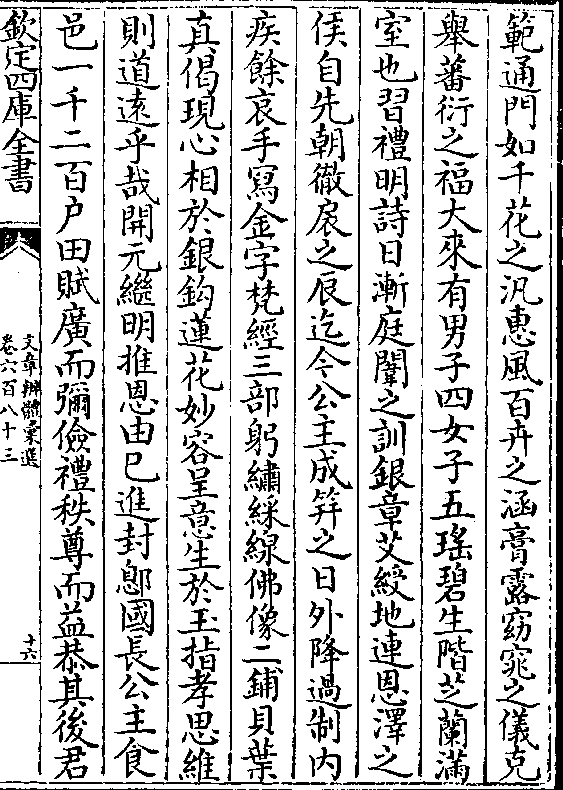 範通門如千花之汎惠風百卉之涵膏露窈窕之儀克
舉蕃衍之福大來有男子四女子五瑤碧生階芝蘭滿
室也習禮明詩日漸庭闈之訓銀章艾綬地連恩澤之
侯自先朝徹扆之辰迄今公主成笄之日外降過制內
疾餘哀手寫金字梵經三部躬繡綵線佛像二鋪貝葉
真偈現心相於銀鈎蓮花妙容呈意生於玉指孝思維
則道遠乎哉開元繼明推恩由已進封鄎國長公主食
邑一千二百户田賦廣而彌儉禮秩尊而益恭其後君
欽定四庫全書
文章辨體彙選
卷六百八十三
十六